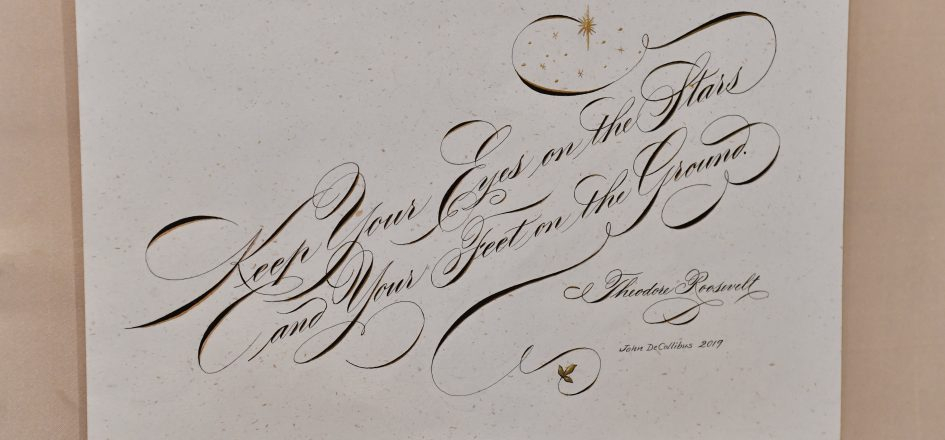 Keep Your Eyes on the Stars
and Your Feet on the Ground.
Theodore Roosevelt
John DeCollibus 2019